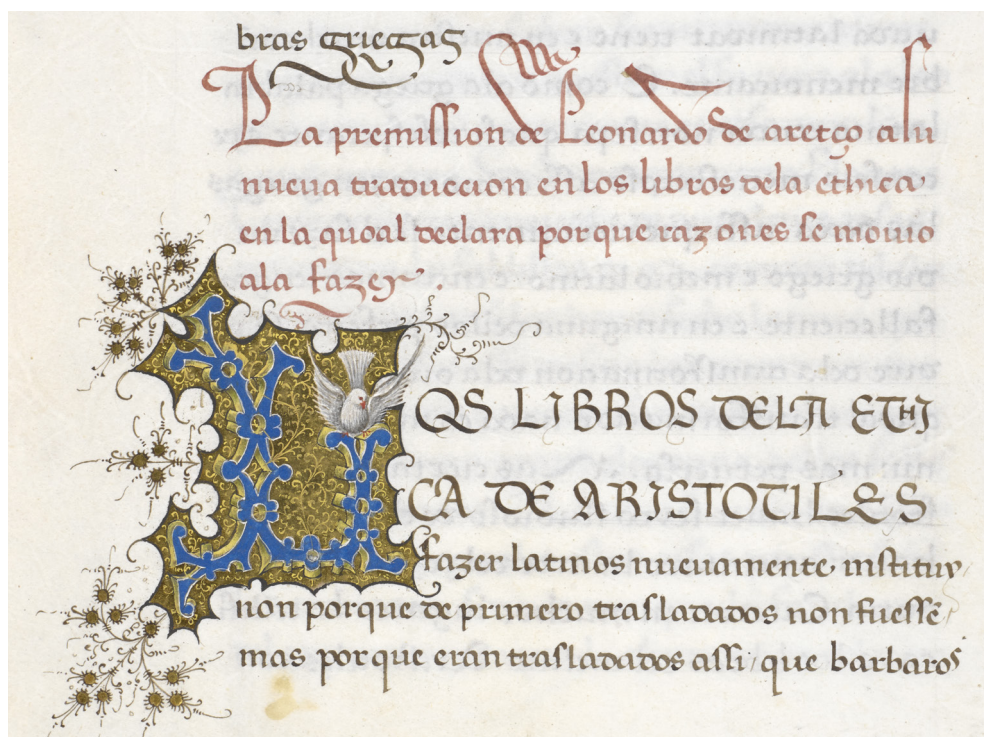 bras griegas
La premission de Leonardo de aretço a su
nueua traduccion en los libros dela ethica
en la qual declara por que razones se mouio
ala fazer
LOS LIBROS DE LA ETHI
CA DE ARISTOTILES
fazer latinos nueuamente instituy
non porque de primero trasladados non fuessē
mas porque eran trasladados assi que barbaros